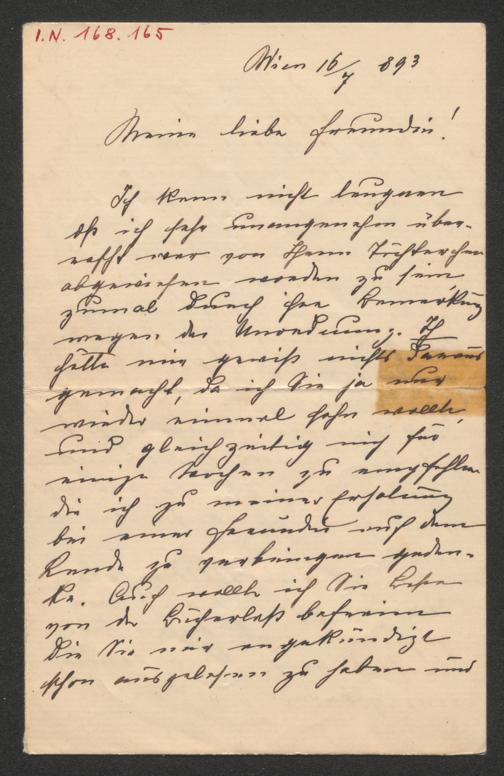 I.N. 168.165
Wien 16/7 893
Meine liebe Freundin!
Ich kann nicht leugnen
dß ich sehr unangenehm über-
rascht war von Ihrem Töchterchen
abgewiesen worden zu sein
zumal durch ihre Bemerkung
wegen der Unordnung. Ich
hätte mir gewiß nichts daraus
gemacht, da ich Sie ja nur
wieder einmal sehn wollte,
und gleichzeitig mich für
einige Wochen zu empfehlen
die ich zu meiner Erholung
bei einer Freundin auf dem
Lande zu verbringen geden-
ke. Auch wollte ich Sie
von der Bücherlast befreien
die Sie mir angekündigt
schon ausgelesen zu haben und